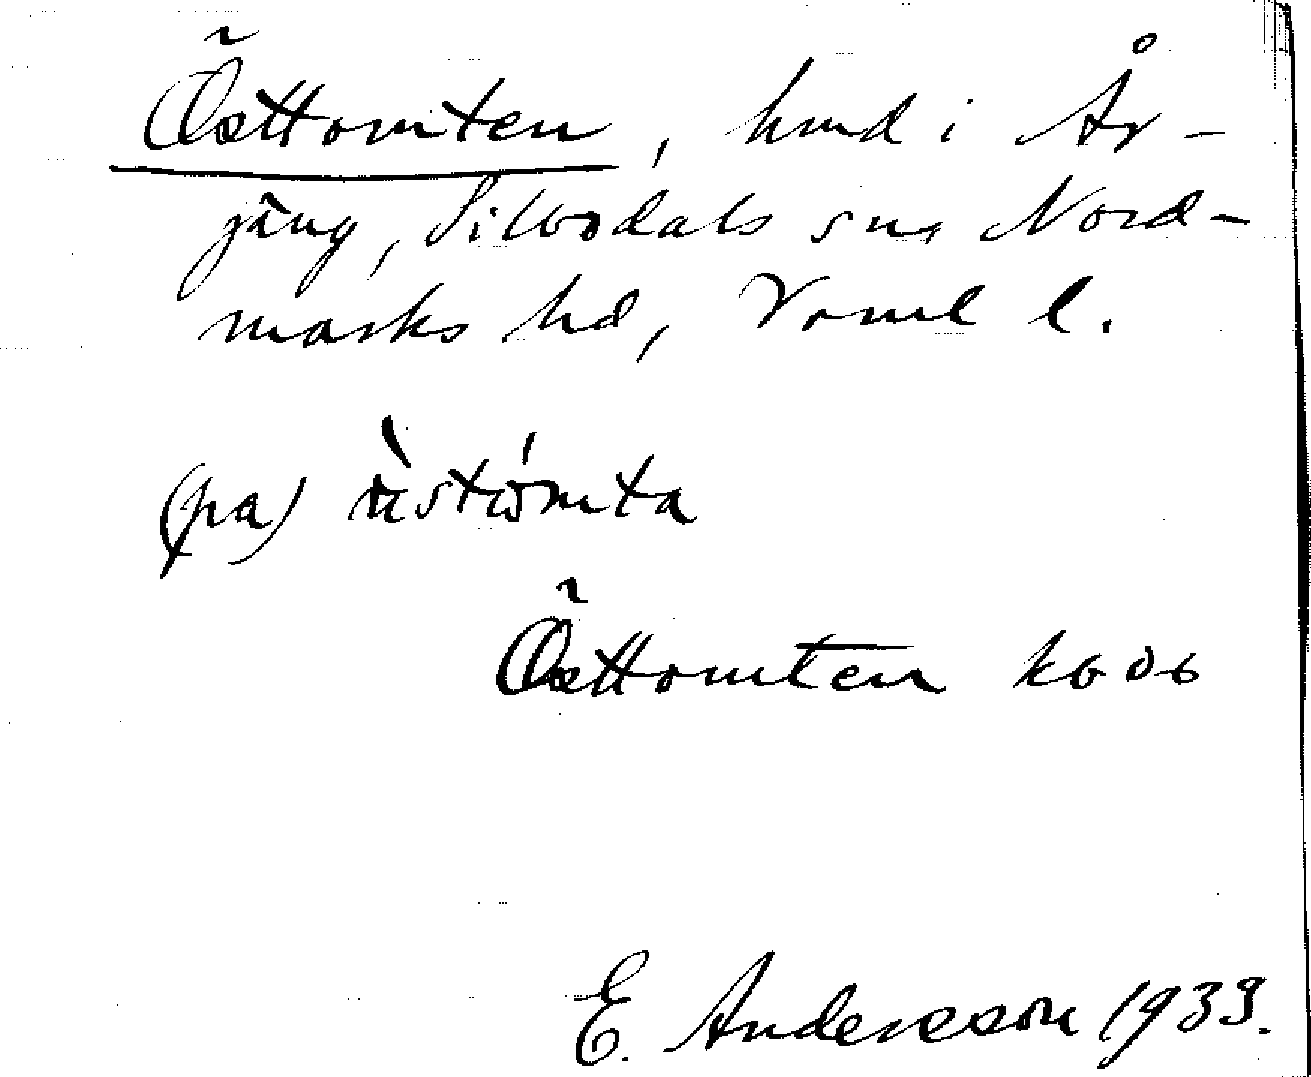 Östtomten, hmd i År-
jäng, Silbodals sns Nord-
marks hd, Vrml l.
(pa) ùstómta
Östtomten
E. Andersson 1933.